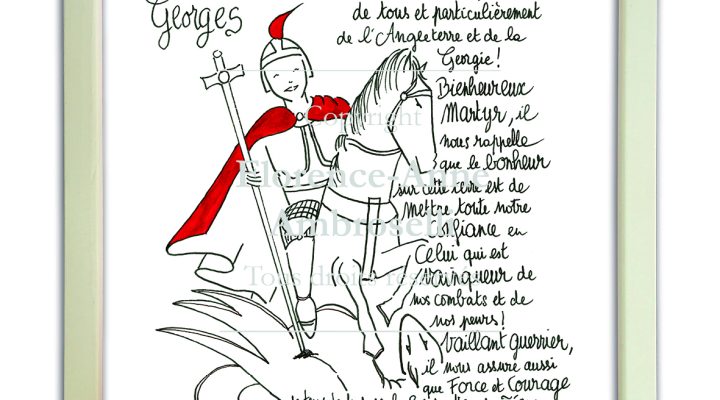 Georges
de tous et particulièrement
de l'Angleterre et de la
Georgie!
Bienheureux
Martyr, il
nous rappelle
que le bonheur
sur cette terre est de
mettre toute notre
confiance en
Celui qui est
vainqueur de
nos combats et de
nos peurs!
Vaillant guerrier,
il nous assure aussi
que Force et Courage
Copyright
Florence-Anne
Ambroselli
Tous droits réservés